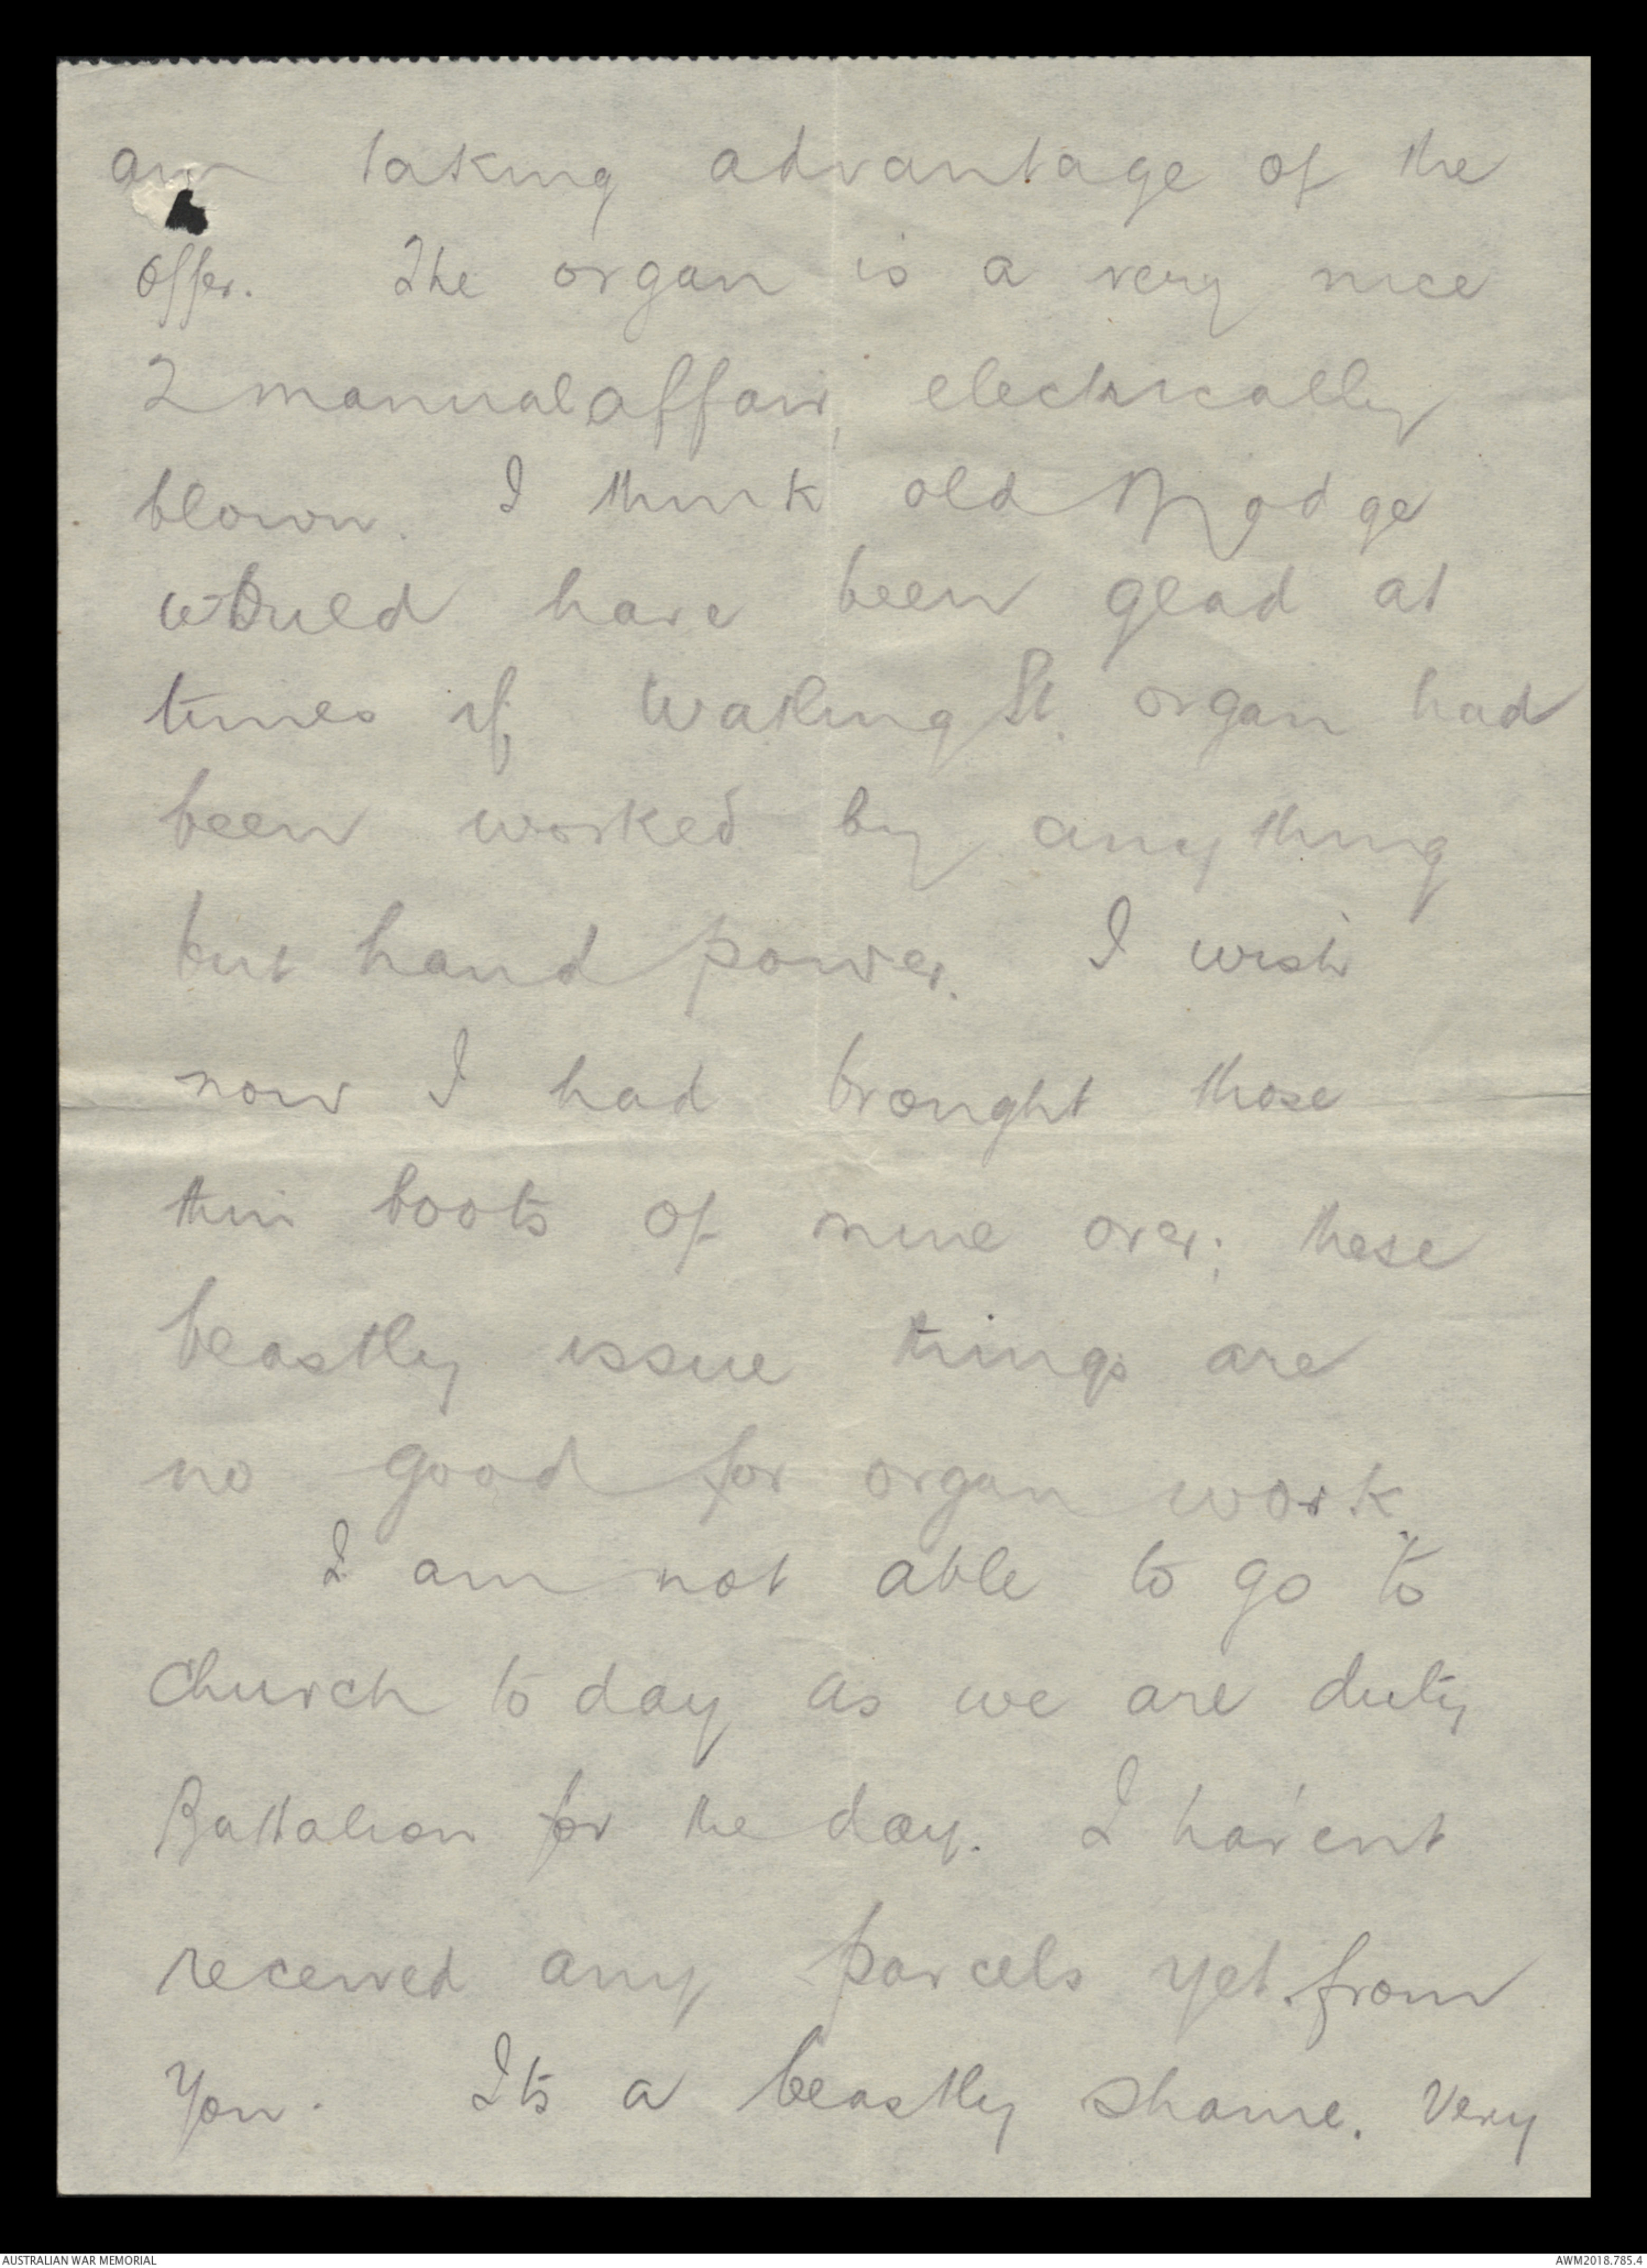 am taking advantage of the
offer. The organ is a very nice
2 manual affair, electrically
blown. I think old Modge
would have been glad at
times if Watling St. organ had
been worked by anything
but hand power. I wish
now I had brought those
thin boots of mine over; these
beastly issue things are
no good for organ work.
I am not able to go to
Church to day as we are duty
Battalion for the day. I hav'ent
received any parcels yet from
you. Its a beastly shame. Very
AUSTRALIAN WAR MEMORIAL
AWM2018.785.4